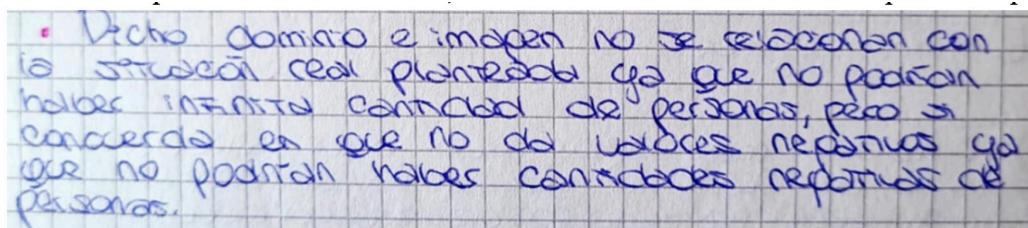 • Dicho dominio e imagen no se relacionan con
la situación real planteada ya que no podrían
haber infinita cantidad de personas, pero si
concuerda en que no da valores negativos ya
que no podrían haber cantidades negativas de
personas.